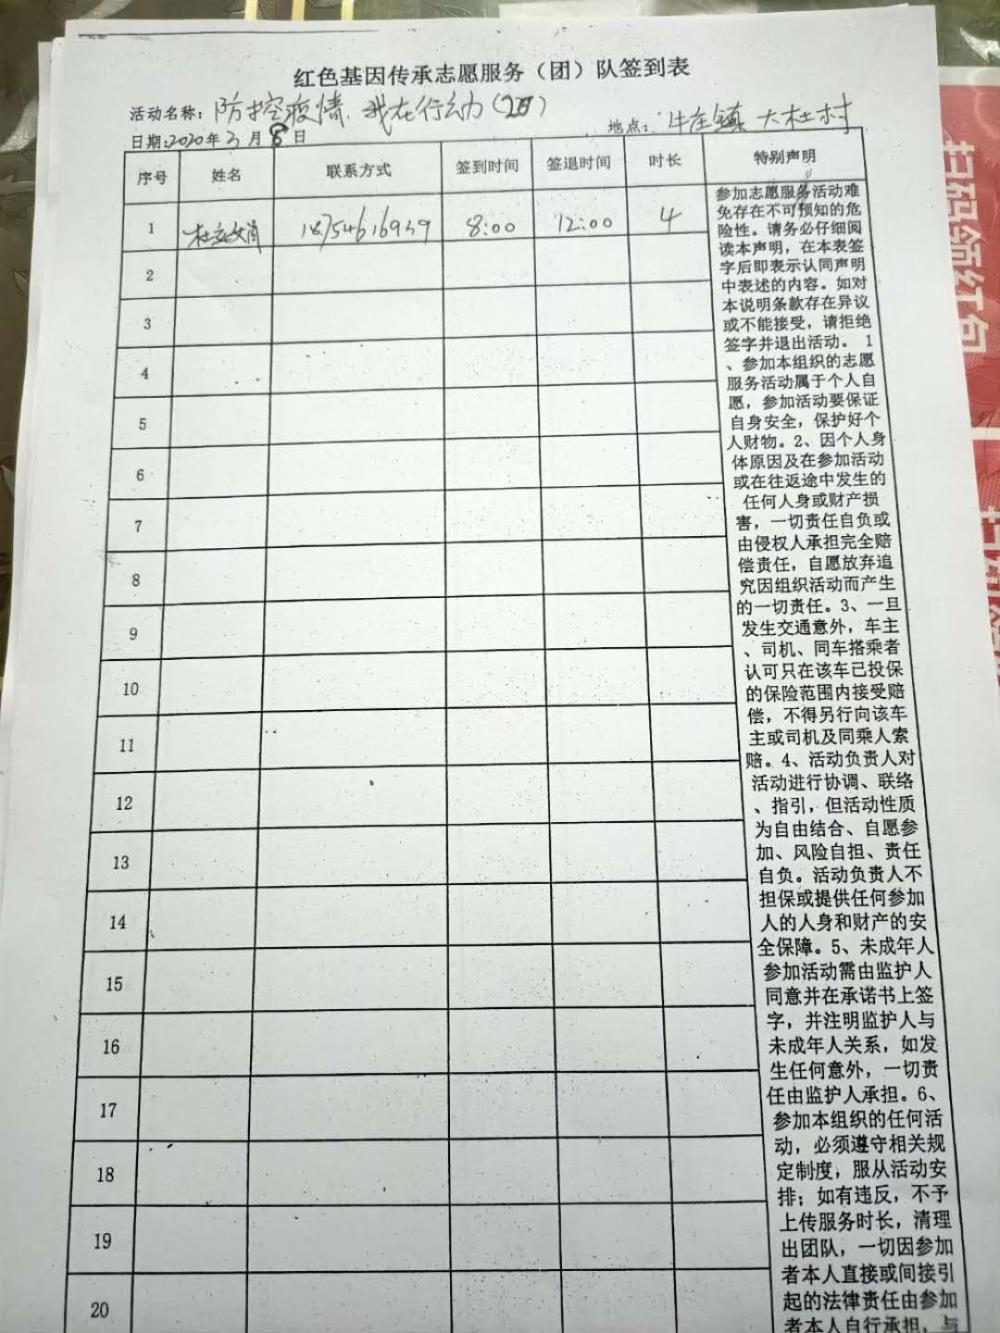 红色基因传承志愿服务（团）队签到表
活动名称：防控疫情、我在行动
日期：2020年3月8日 地点：牛庄镇 大杜村
序号 姓名 联系方式 签到时间 签退时间 时长 特别声明
1 18754616939 8:00 12:00 4
2
3
4
5
6
7
8
9
10
11
12
13
14
15
16
17
18
19
20
参加志愿服务活动难
免存在不可预知的危
险性。请务必仔细阅
读本声明，在本表签
字后即表示认同声明
中表述的内容。如对
本说明条款存在异议
或不能接受，请拒绝
签字并退出活动。 1
、参加本组织的志愿
服务活动属于个人自
愿，参加活动要保证
自身安全，保护好个
人财物。2、因个人身
体原因及在参加活动
或在往返途中发生的
任何人身或财产损
害，一切责任自负或
由侵权人承担完全赔
偿责任，自愿放弃追
究因组织活动而产生
的一切责任。3、一旦
发生交通意外，车主
、司机、同车搭乘者
认可只在该车已投保
的保险范围内接受赔
偿，不得另行向该车
主或司机及同乘人索
赔。4、活动负责人对
活动进行协调、联络
、指引，但活动性质
为自由结合、自愿参
加、风险自担、责任
自负。活动负责人不
担保或提供任何参加
人的人身和财产的安
全保障。5、未成年人
参加活动需由监护人
同意并在承诺书上签
字，并注明监护人与
未成年人关系，如发
生任何意外，一切责
任由监护人承担。6、
参加本组织的任何活
动，必须遵守相关规
定制度，服从活动安
排；如有违反，不予
上传服务时长，清理
出团队，一切因参加
者本人直接或间接引
起的法律责任由参加
者本人自行承担，与
扫码领红包